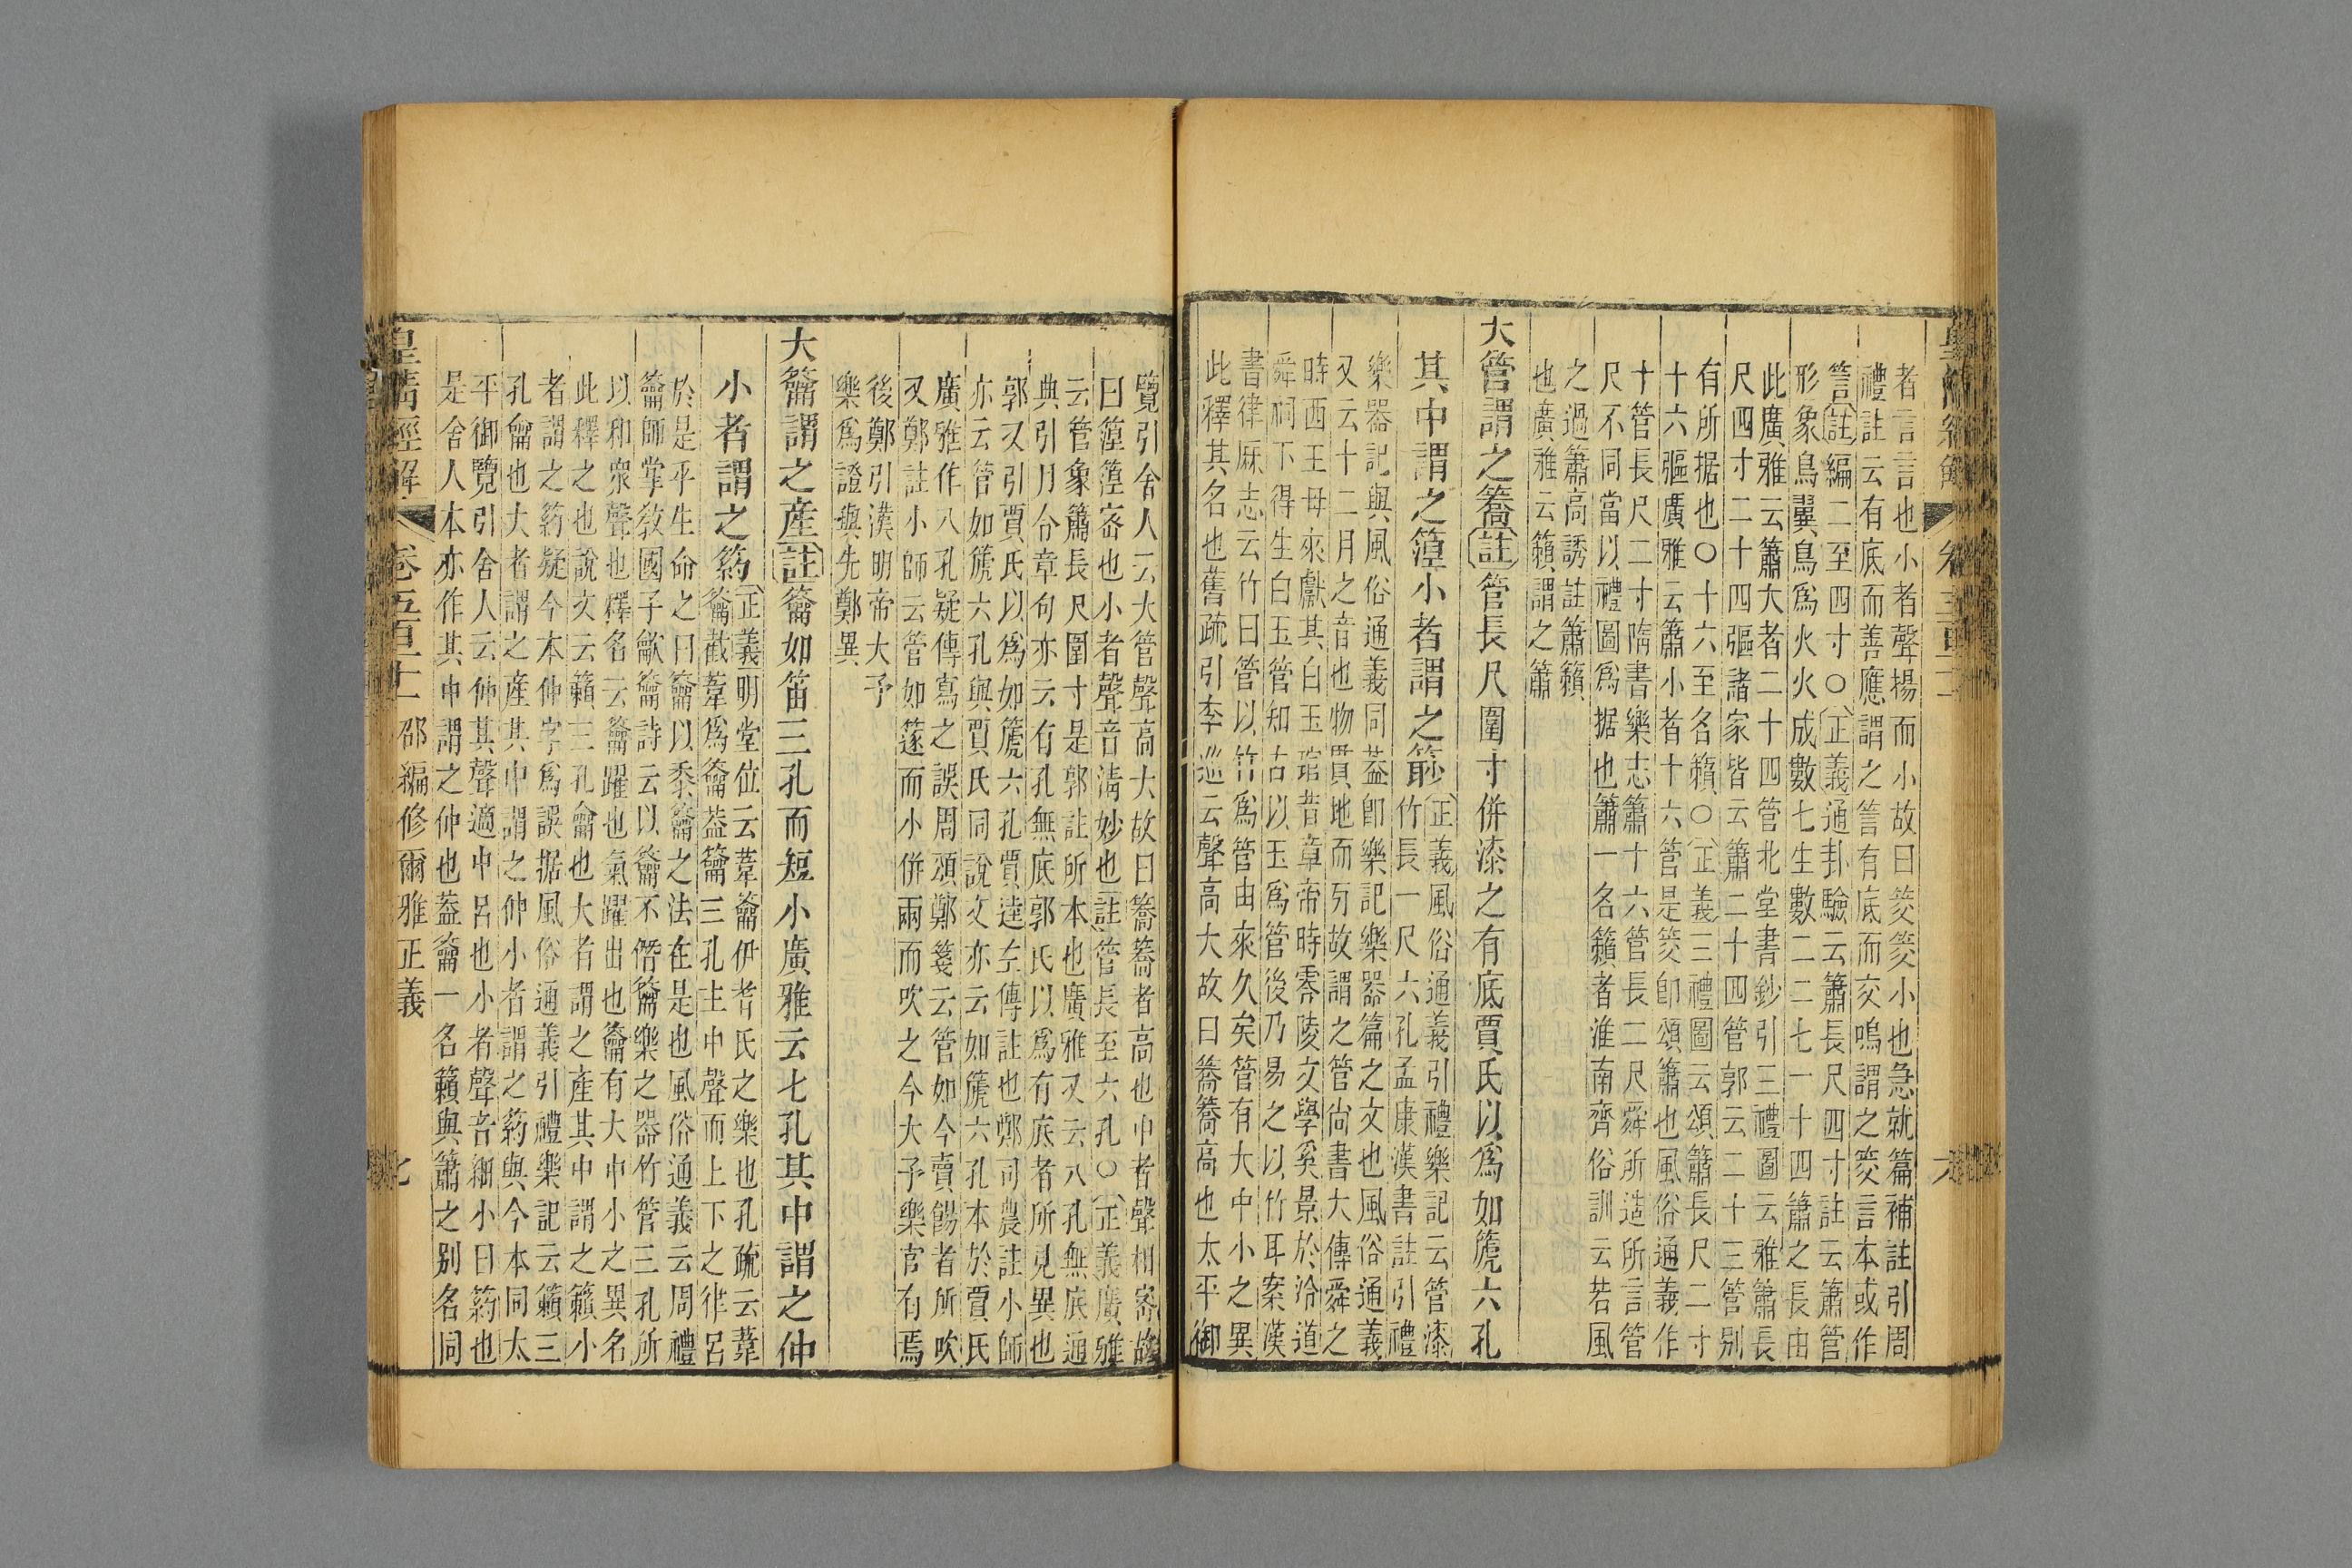 者言言也小者聲揚而小故曰筊筊小也急就篇補註引周
禮註云有底而善應謂之筶有底而交鳴謂之筊言本或作
筶註編二至四寸○正義通卦驗云簫長尺四寸註云簫管
形象鳥翼鳥為火火成數七生數二二七一十四簫之長由
此廣雅云簫大者二十四管北堂書鈔引三禮圖云雅簫長
尺四寸二十四彄諸家皆云簫二十四管郭云二十三管別
有所据也○十六至名籟○正義三禮圖云頌簫長尺二寸
十六彄廣雅云簫小者十六管是筊卽頌簫也風俗通義作
十管長尺二寸隋書樂志簫十六管長二尺舜所造所言管
尺不同當以禮圖為据也簫一名籟者淮南齊俗訓云若風
之過簫高誘註簫籟
也廣雅云籟謂之簫
大管謂之簥註管長尺圍寸併漆之有底賈氏以為如篪六孔
其中謂之篞小者謂之篎正義風俗通義引禮樂記云管漆
竹長一尺六孔孟康漢書註引禮
樂器記與風俗通義同蓋卽樂記樂器篇之文也風俗通義
又云十二月之音也物貫地而牙故謂之管尚書大傳舜之
時西王母來獻其白玉琯昔章帝時零陵文學奚景於泠道
舜祠下得生白玉管知古以玉為管後乃易之以竹耳案漢
書律厤志云竹曰管以竹為管由來久矣管有大中小之異
此釋其名也舊疏引李巡云聲高大故曰簥簥高也太平御
覽引舍人云大管聲高大故曰簥簥者高也中者聲相密故
曰篞篞密也小者聲音淸妙也註管長至六孔○正義廣雅
云管象簫長尺圍寸是郭註所本也廣雅又云八孔無底通
典引月令章句亦云有孔無底郭氏以為有底者所見異也
郭又引賈氏以為如篪六孔賈逵左傳註也鄭司農註小師
亦云管如篪六孔與賈氏同說文亦云如篪六孔本於賈氏
廣雅作八孔疑傳寫之誤周頌鄭箋云管如今賣餳者所吹
又鄭註小師云管如篴而小併兩而吹之今大予樂官有焉
後鄭引漢明帝大予
樂為證與先鄭異
大籥謂之產註籥如笛三孔而短小廣雅云七孔其中謂之仲
小者謂之箹正義明堂位云葦籥伊耆氏之樂也孔疏云葦
籥截葦為籥蓋籥三孔主中聲而上下之律呂
於是乎生命之曰籥以黍籥之法在是也風俗通義云周禮
籥師掌敎國子龡籥詩云以籥不僭籥樂之器竹管三孔所
以和衆聲也釋名云籥躍也氣躍出也籥有大中小之異名
此釋之也說文云籟三孔龠也大者謂之產其中謂之籟小
者謂之箹疑今本仲字為誤据風俗通義引禮樂記云籟三
孔龠也大者謂之產其中謂之仲小者謂之箹與今本同太
平御覽引舍人云仲其聲適中呂也小者聲音細小曰箹也
是舍人本亦作其中謂之仲也蓋籥一名籟與簫之別名同
皇淸經解 卷五百十一 邵編修爾雅正義